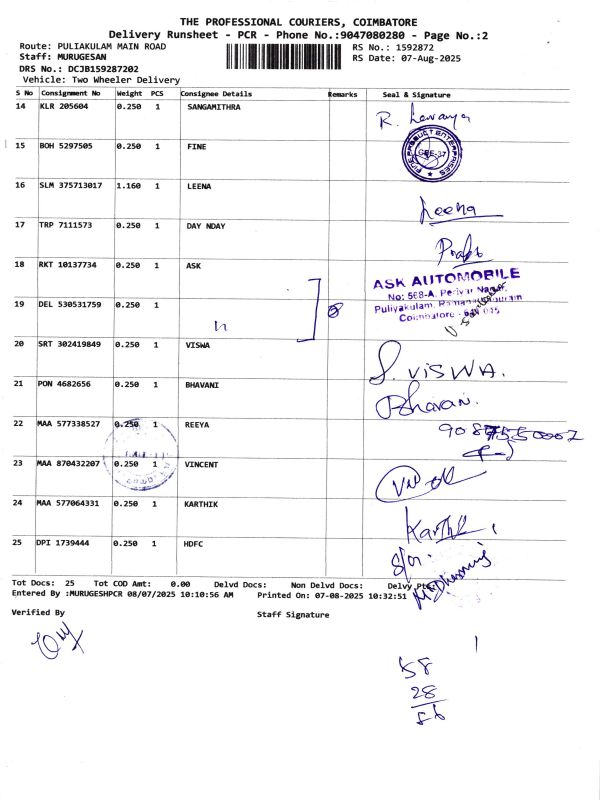 THE PROFESSIONAL COURIERS, COIMBATORE
Delivery Runsheet - PCR - Phone No.:9047080280 - Page No.:2
Route: PULIAKULAM MAIN ROAD RS No.: 1592872
Staff: MURUGESAN RS Date: 07-Aug-2025
DRS No.: DCJB159287202
Vehicle: Two Wheeler Delivery
S No Consignment No Weight PCS Consignee Details Remarks Seal & Signature
14 KLR 205604 0.250 1 SANGAMITHRA R. Lavanya
15 BOH 5297505 0.250 1 FINE FINE PRODUCT ENTERPRISES CBE-37
16 SLM 375713017 1.160 1 LEENA Leena
17 TRP 7111573 0.250 1 DAY NDAY
18 RKT 10137734 0.250 1 ASK ASK AUTOMOBILE
No: 568-A, Periyar Nagar,
19 DEL 530531759 0.250 1 Puliyakulam, Ramanathapuram
Coimbatore - 641 045
20 SRT 302419849 0.250 1 VISWA S. VISWA.
21 PON 4682656 0.250 1 BHAVANI Bhavani.
22 MAA 577338527 0.250 1 REEYA
23 MAA 870432207 0.250 1 VINCENT
24 MAA 577064331 0.250 1 KARTHIK Karthik.
25 DPI 1739444 0.250 1 HDFC
Tot Docs: 25 Tot COD Amt: 0.00 Delvd Docs: Non Delvd Docs: Delvy Pte:
Entered By :MURUGESHPCR 08/07/2025 10:10:56 AM Printed On: 07-08-2025 10:32:51
Verified By Staff Signature
58
28